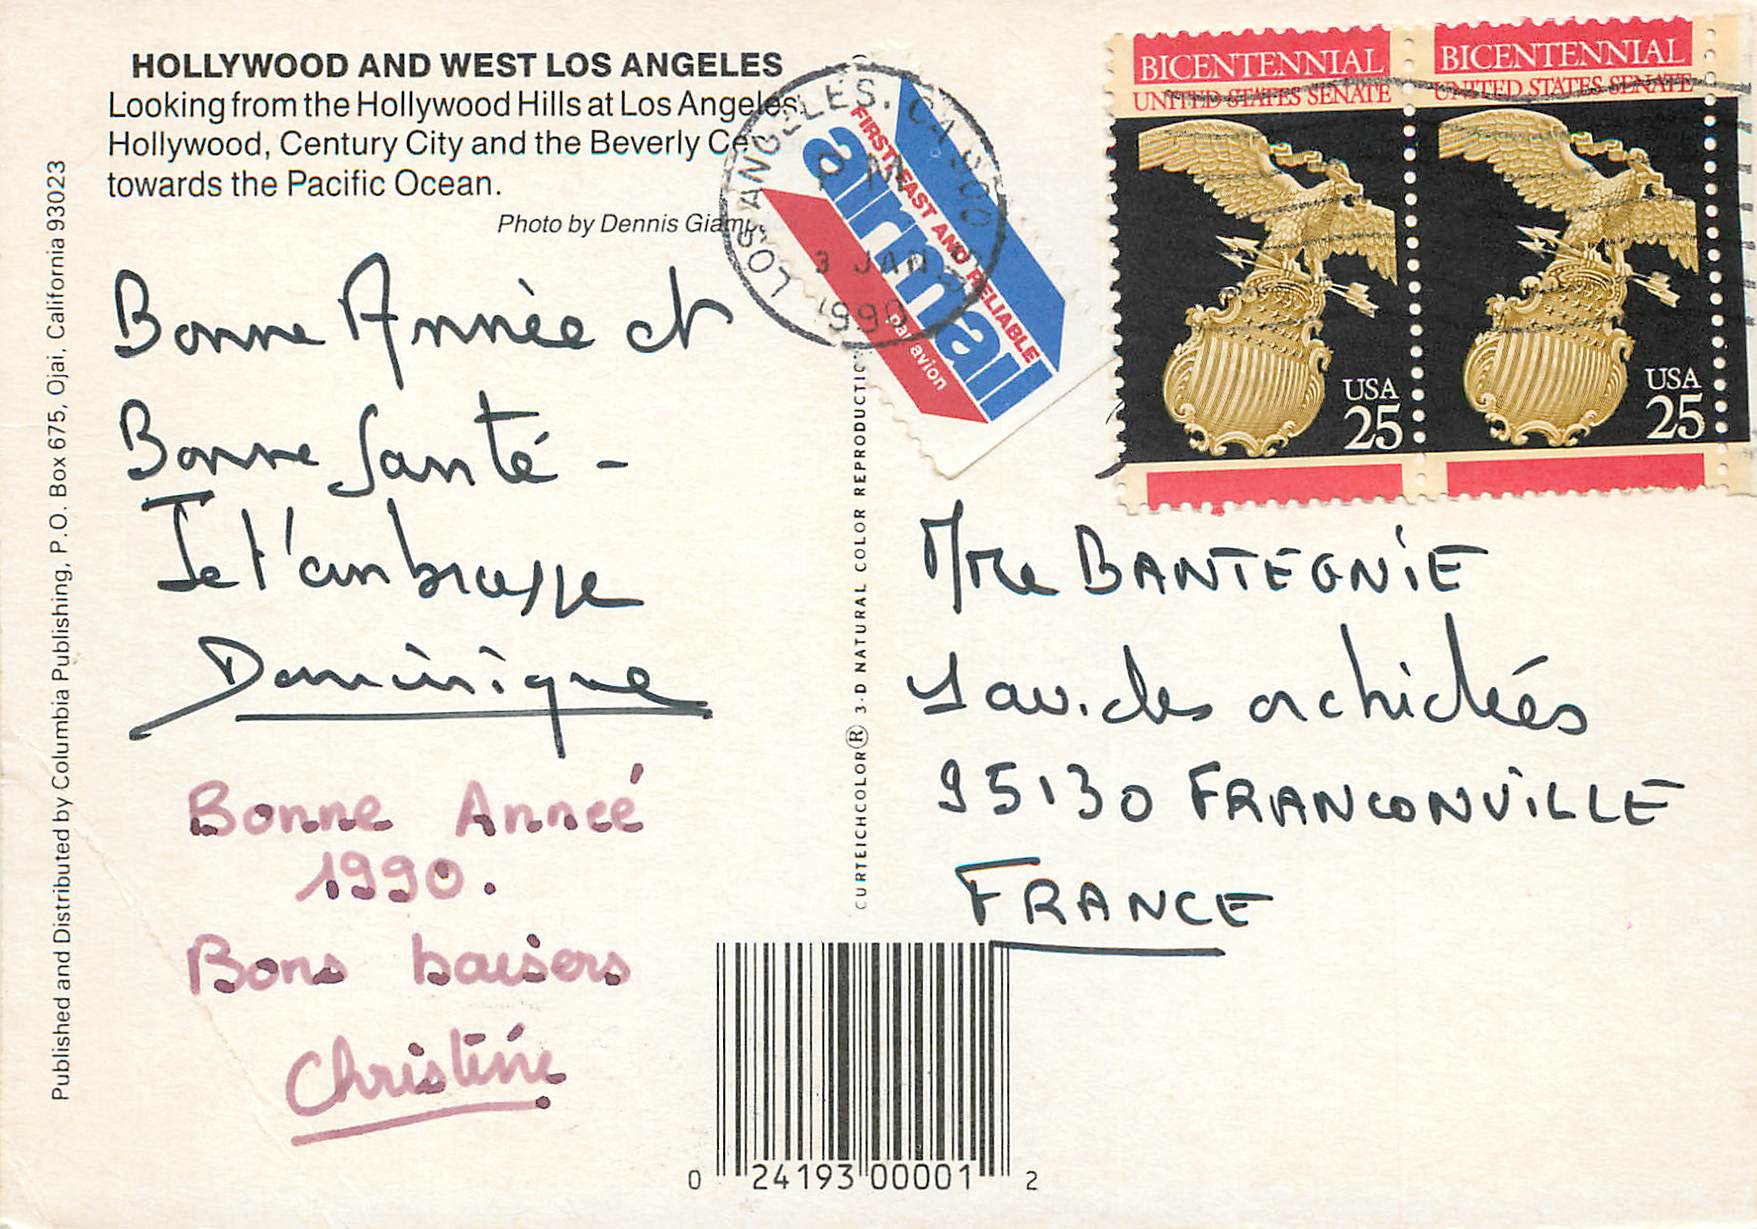 HOLLYWOOD AND WEST LOS ANGELES
Looking from the Hollywood Hills at Los Angeles,
Hollywood, Century City and the Beverly Ce
towards the Pacific Ocean.
Photo by Dennis Giam
Published and Distributed by Columbia Publishing, P.O. Box 675, Ojai, California 93023
Bonne Année et
Bonne Santé -
Je t'embrasse
Dominique
Bonne Anneé
1990.
Bons baisers
Christine
CURTEICHCOLOR® 3-D NATURAL COLOR REPRODUCTIO
LOS ANGELES, CA 900
3 JAN
1990
FIRST, FAST AND RELIABLE
airmail
par avion
BICENTENNIAL
UNITED STATES SENATE
USA
25
BICENTENNIAL
UNITED STATES SENATE
USA
25
Mme BANTEGNIE
1 av. des orchidées
95130 FRANCONVILLE
FRANCE
0 24193 00001 2